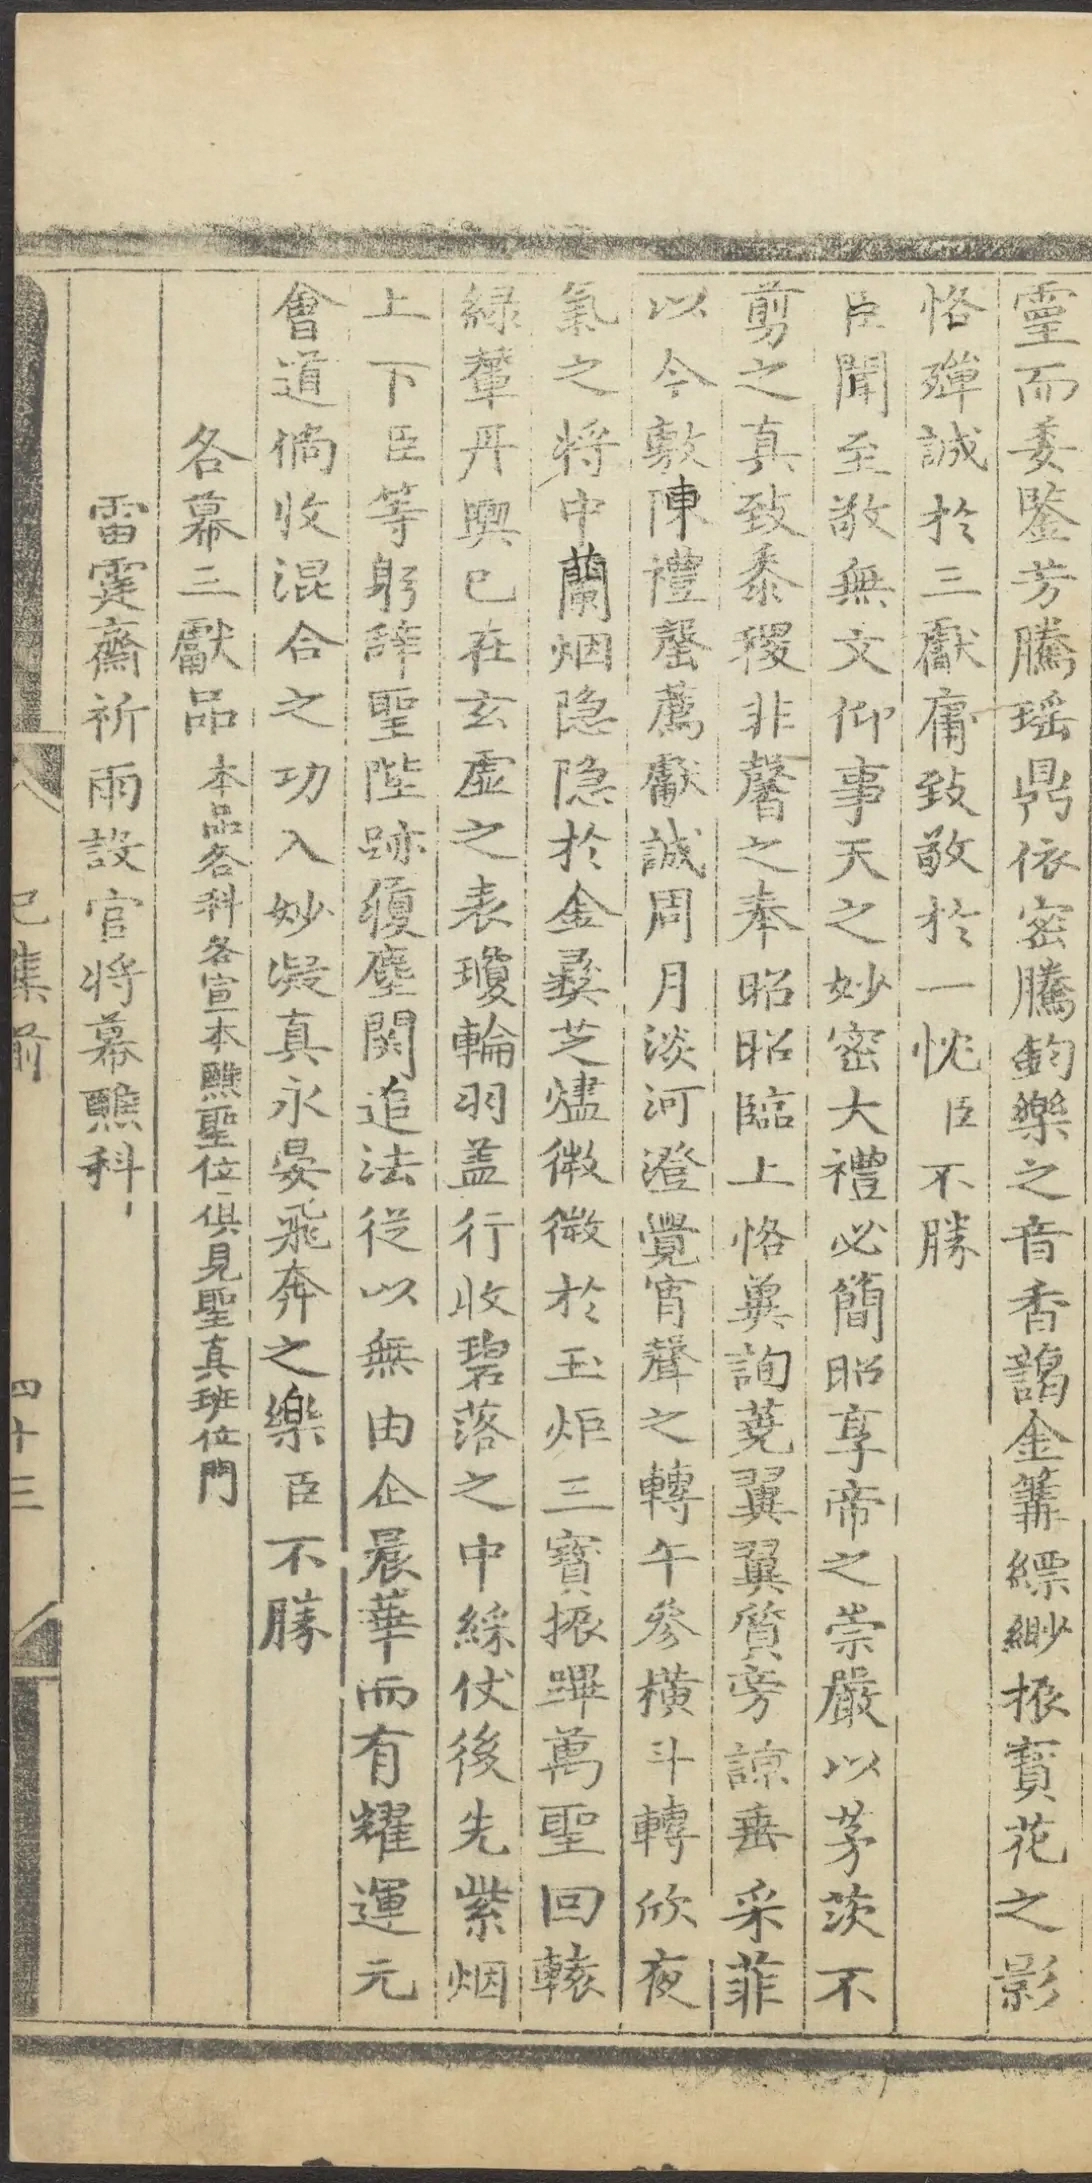 靈而委鑒芳騰瑶鼎依密騰鈞樂之音香靄金篝縹緲振寶花之影
恪殫誠於三獻庸致敬於一忱臣不勝
臣聞至敬無文仰事天之妙密大禮必簡昭享帝之崇嚴以茅茨不
剪之真致黍稷非馨之奉昭昭臨上恪奠詢蕘翼翼質旁諒垂采菲
以今敷陳禮罄薦獻誠周月淡河澄覺宵聲之轉午參橫斗轉欣夜
氣之将中蘭烟隐隐於金彞芝燼微微於玉炬三寶振蹕萬聖回轅
緑輦丹輿已在玄虛之表瓊輪羽盖行收碧落之中綵仗後先紫烟
上下臣等躬辞聖陛跡復塵関追法從以無由企晨華而有耀運元
會道倘收混合之功入妙凝真永晏飛奔之樂臣不勝
各幕三獻品 本品各科各宣本醮聖位俱見聖真班位門
雷霆齋祈雨設官将幕醮科
巳集前 四十三